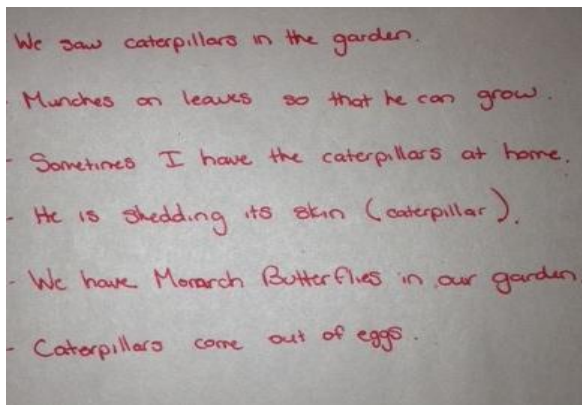 We saw caterpillars in the garden.
- Munches on leaves so that he can grow.
- Sometimes I have the caterpillars at home.
- He is shedding its skin (caterpillar).
- We have Monarch Butterflies in our garden
- Caterpillars come out of eggs.